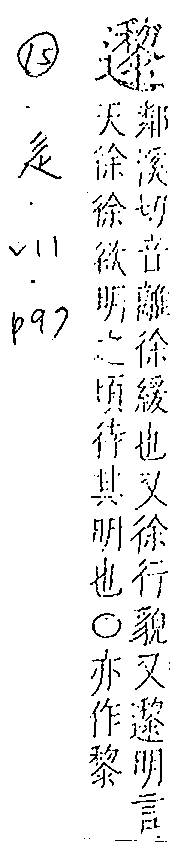 邌
鄰溪切音離徐緩也又徐行貌又邌明言
天徐徐欲明之頃待其明也○亦作黎
15
.
辵
.
v11
.
p97